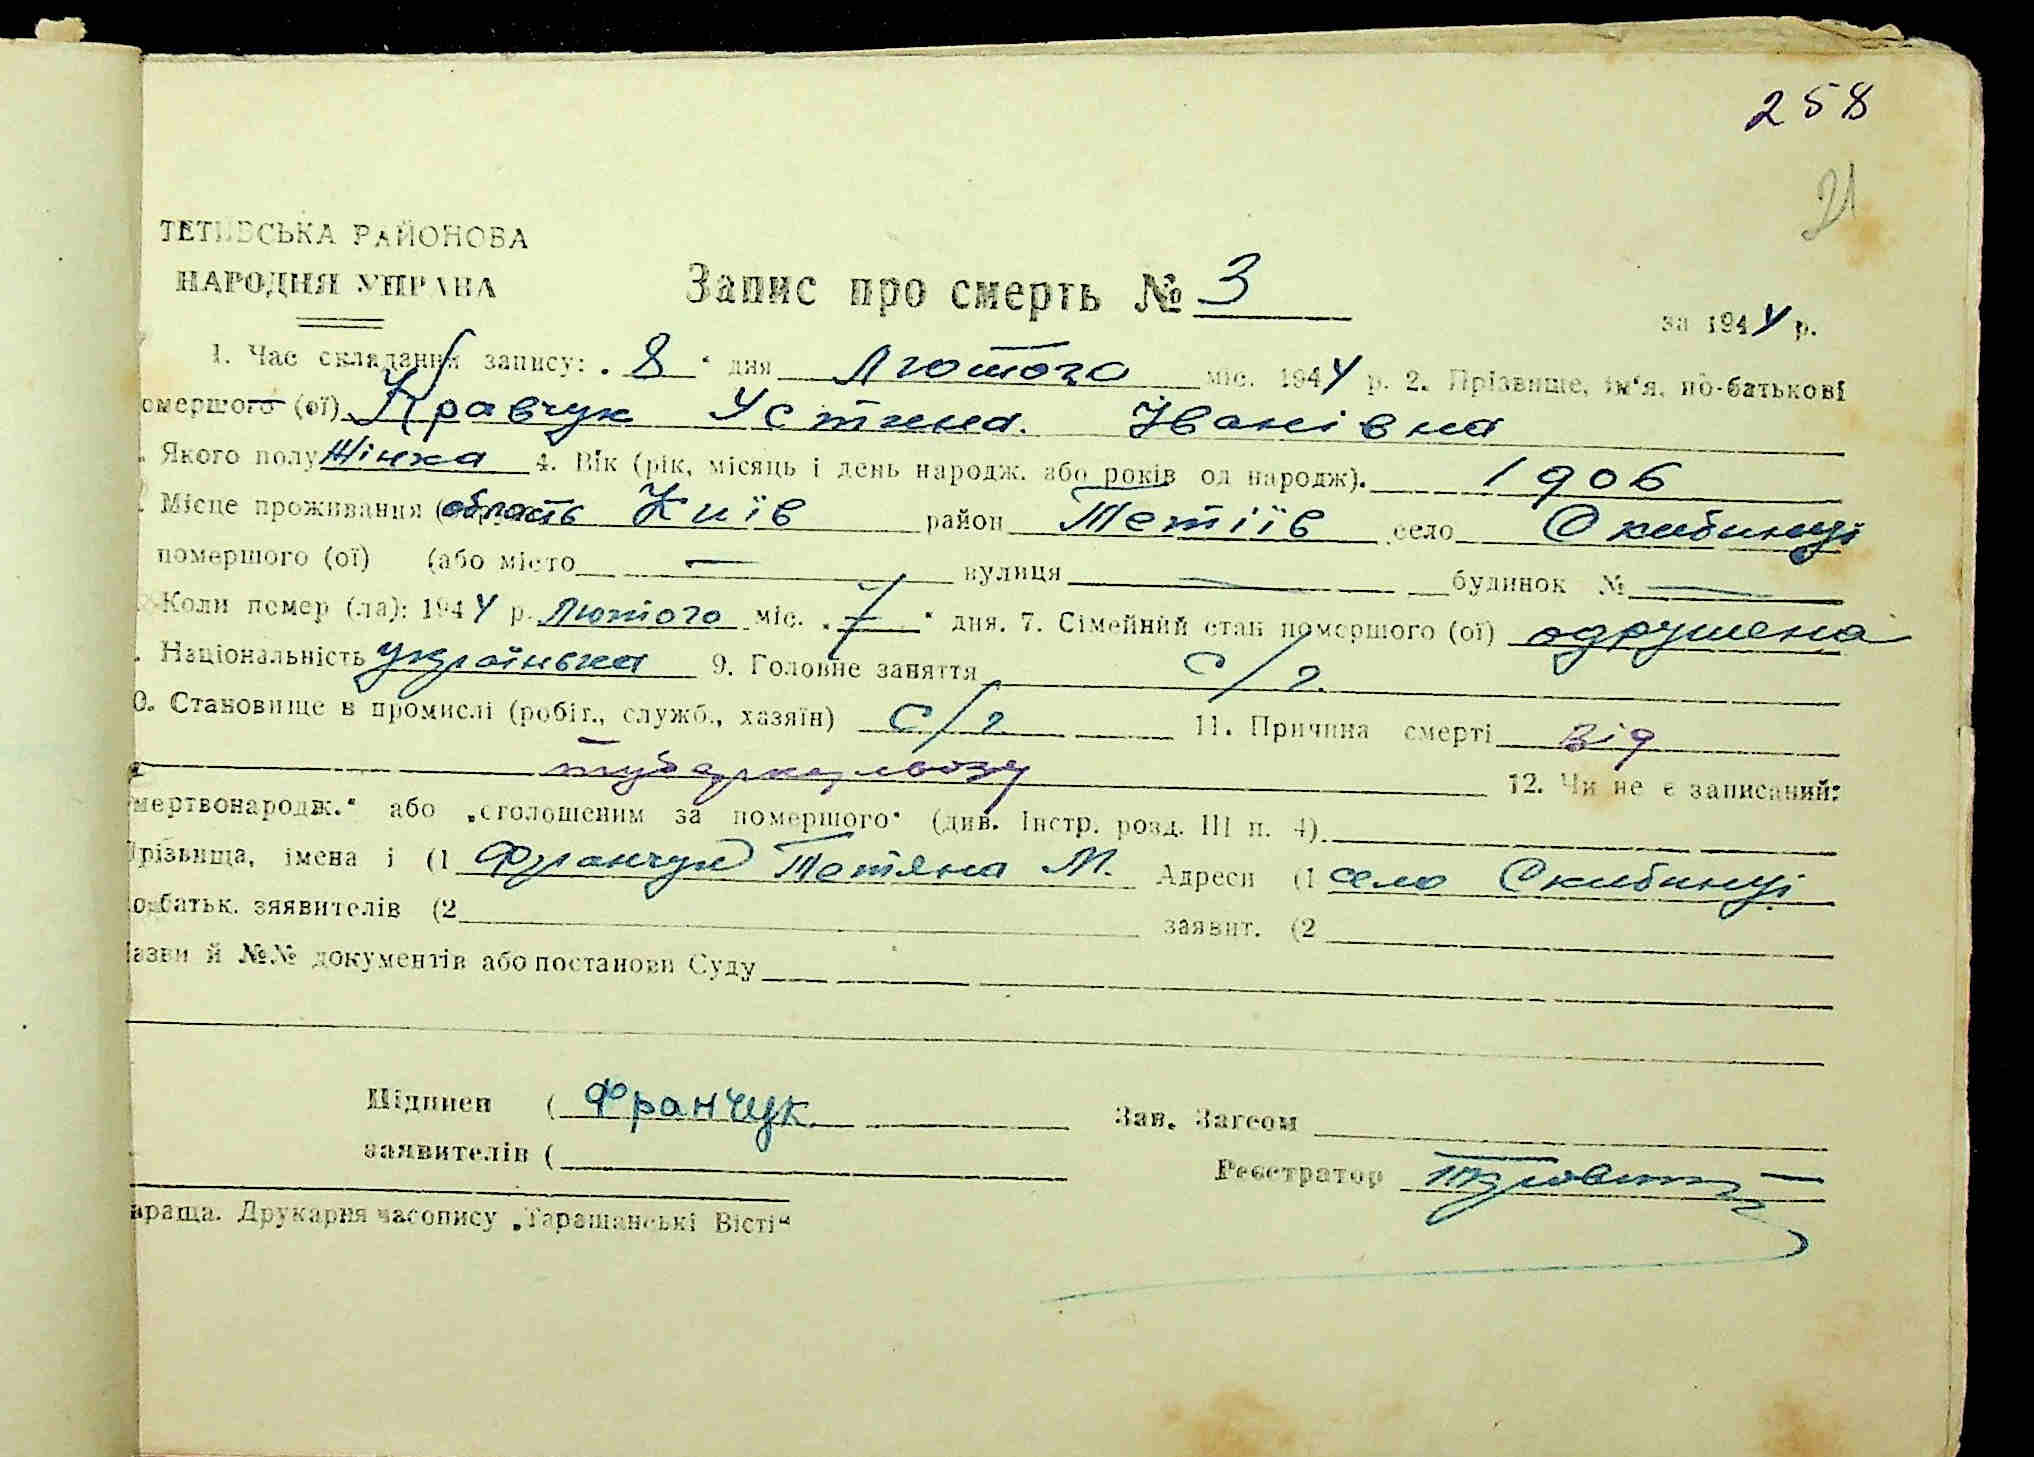 258
21
ТЕТІЇВСЬКА РАЙОНОВА
НАРОДНЯ УПРАВА
Запис про смерть № 3
за 1944 р.
1. Час складання запису: „8“ дня Лютого міс. 1944 р. 2. Прізвище, ім‘я, по-батькові
омершого (ої) Кравчук Устина Іванівна
. Якого полу Жінка 4. Вік (рік, місяць і день народж. або років од народж). 1906
. Місце проживання (область Київ район Тетіїв село Скибинці
помершого (ої) (або місто — вулиця — будинок № —
Коли помер (ла): 1944 р. Лютого міс. „7“ дня. 7. Сімейний стан помершого (ої) одружена
. Національність українька 9. Головне заняття с/г.
0. Становище в промислі (робіт., служб., хазяїн) с/г 11. Причина смерті від
туберкульозу 12. Чи не є записаний:
мертвонародж.“ або „оголошеним за помершого“ (див. Інстр. розд. III п. 4)
Прізвища, імена і (1 Франчук Тетяна М. Адреси (1 село Скибинці
о-батьк. зяявителів (2 заявит. (2
азви й №№ документів або постанови Суду
Підписи ( Франчук Зав. Загсом
заявителів (
Реєстратор
араща. Друкарня часопису „Таращанські Вісті“